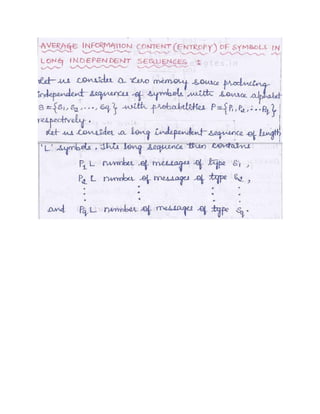 AVERAGE INFORMATION CONTENT (ENTROPY) OF SYMBOLS IN
LONG INDEPENDENT SEQUENCES :
Let us consider a zero memory source producing
independent sequences of symbols with source alphabet
S = {S1, S2, ...., Sq} with probabilities P = {P1, P2, ... Pq}
respectively.
Let us consider a long independent sequence of length
'L' symbols. This long sequence then contains:
P1 L number of messages of type S1,
P2 L number of messages of type S2,
and Pq L number of messages of type Sq.